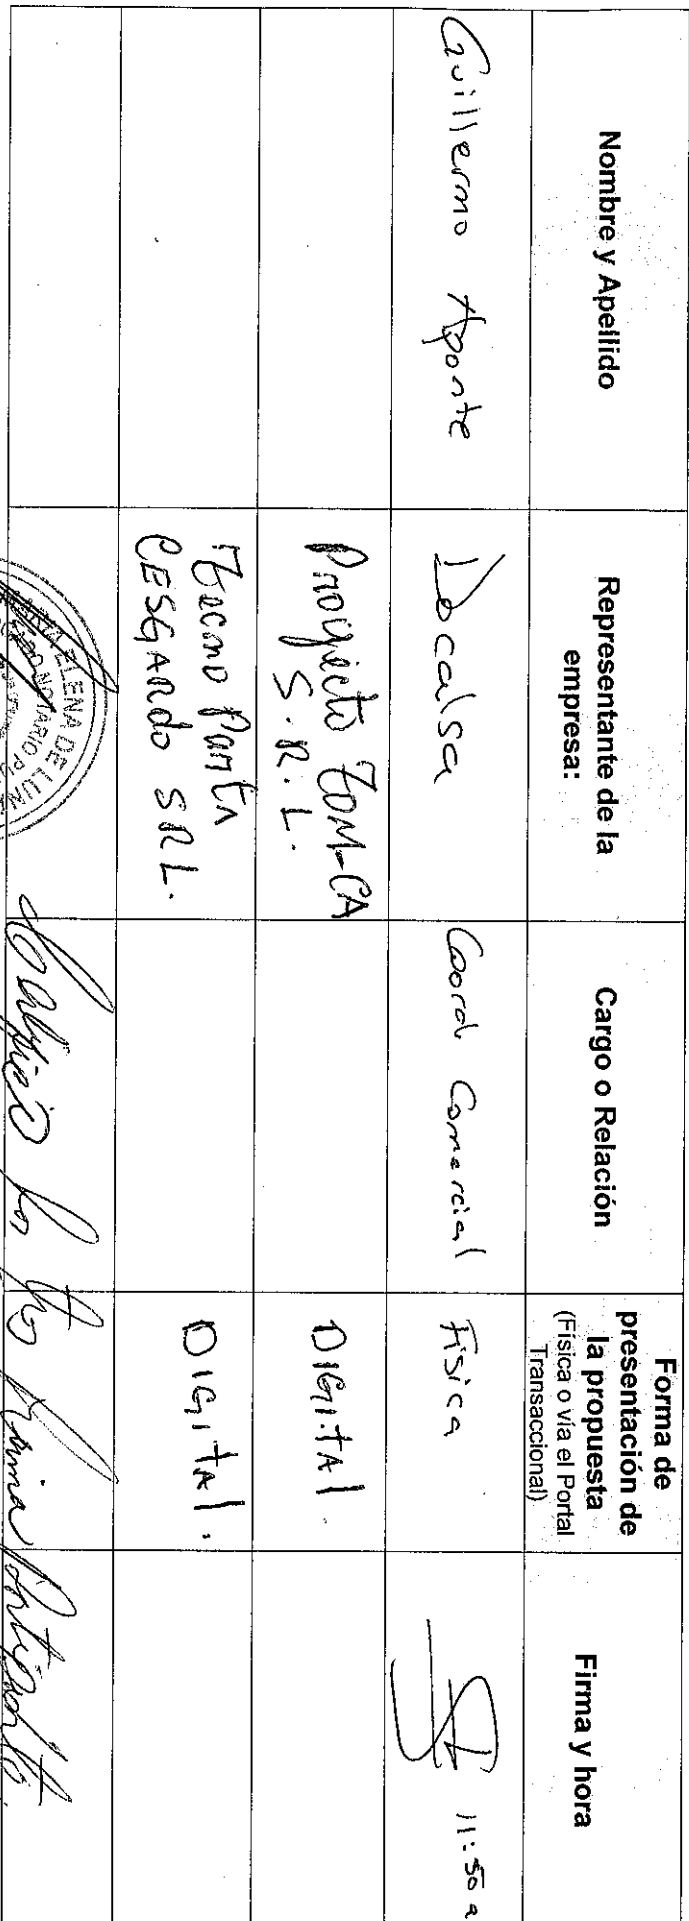 Nombre y Apellido
Representante de la
empresa:
Cargo o Relación
Forma de
presentación de
la propuesta
(Física o vía el Portal
Transaccional)
Firma y hora
Guillermo Aponte
Docalsa
Coord. Comercial
Física
11:50 a
Proyecto ZOM-CA
S.R.L.
DIGITAL.
Tecno Parts
CESGARDO SRL.
DIGITAL.
ELENA DE LUNA
NOTARIO